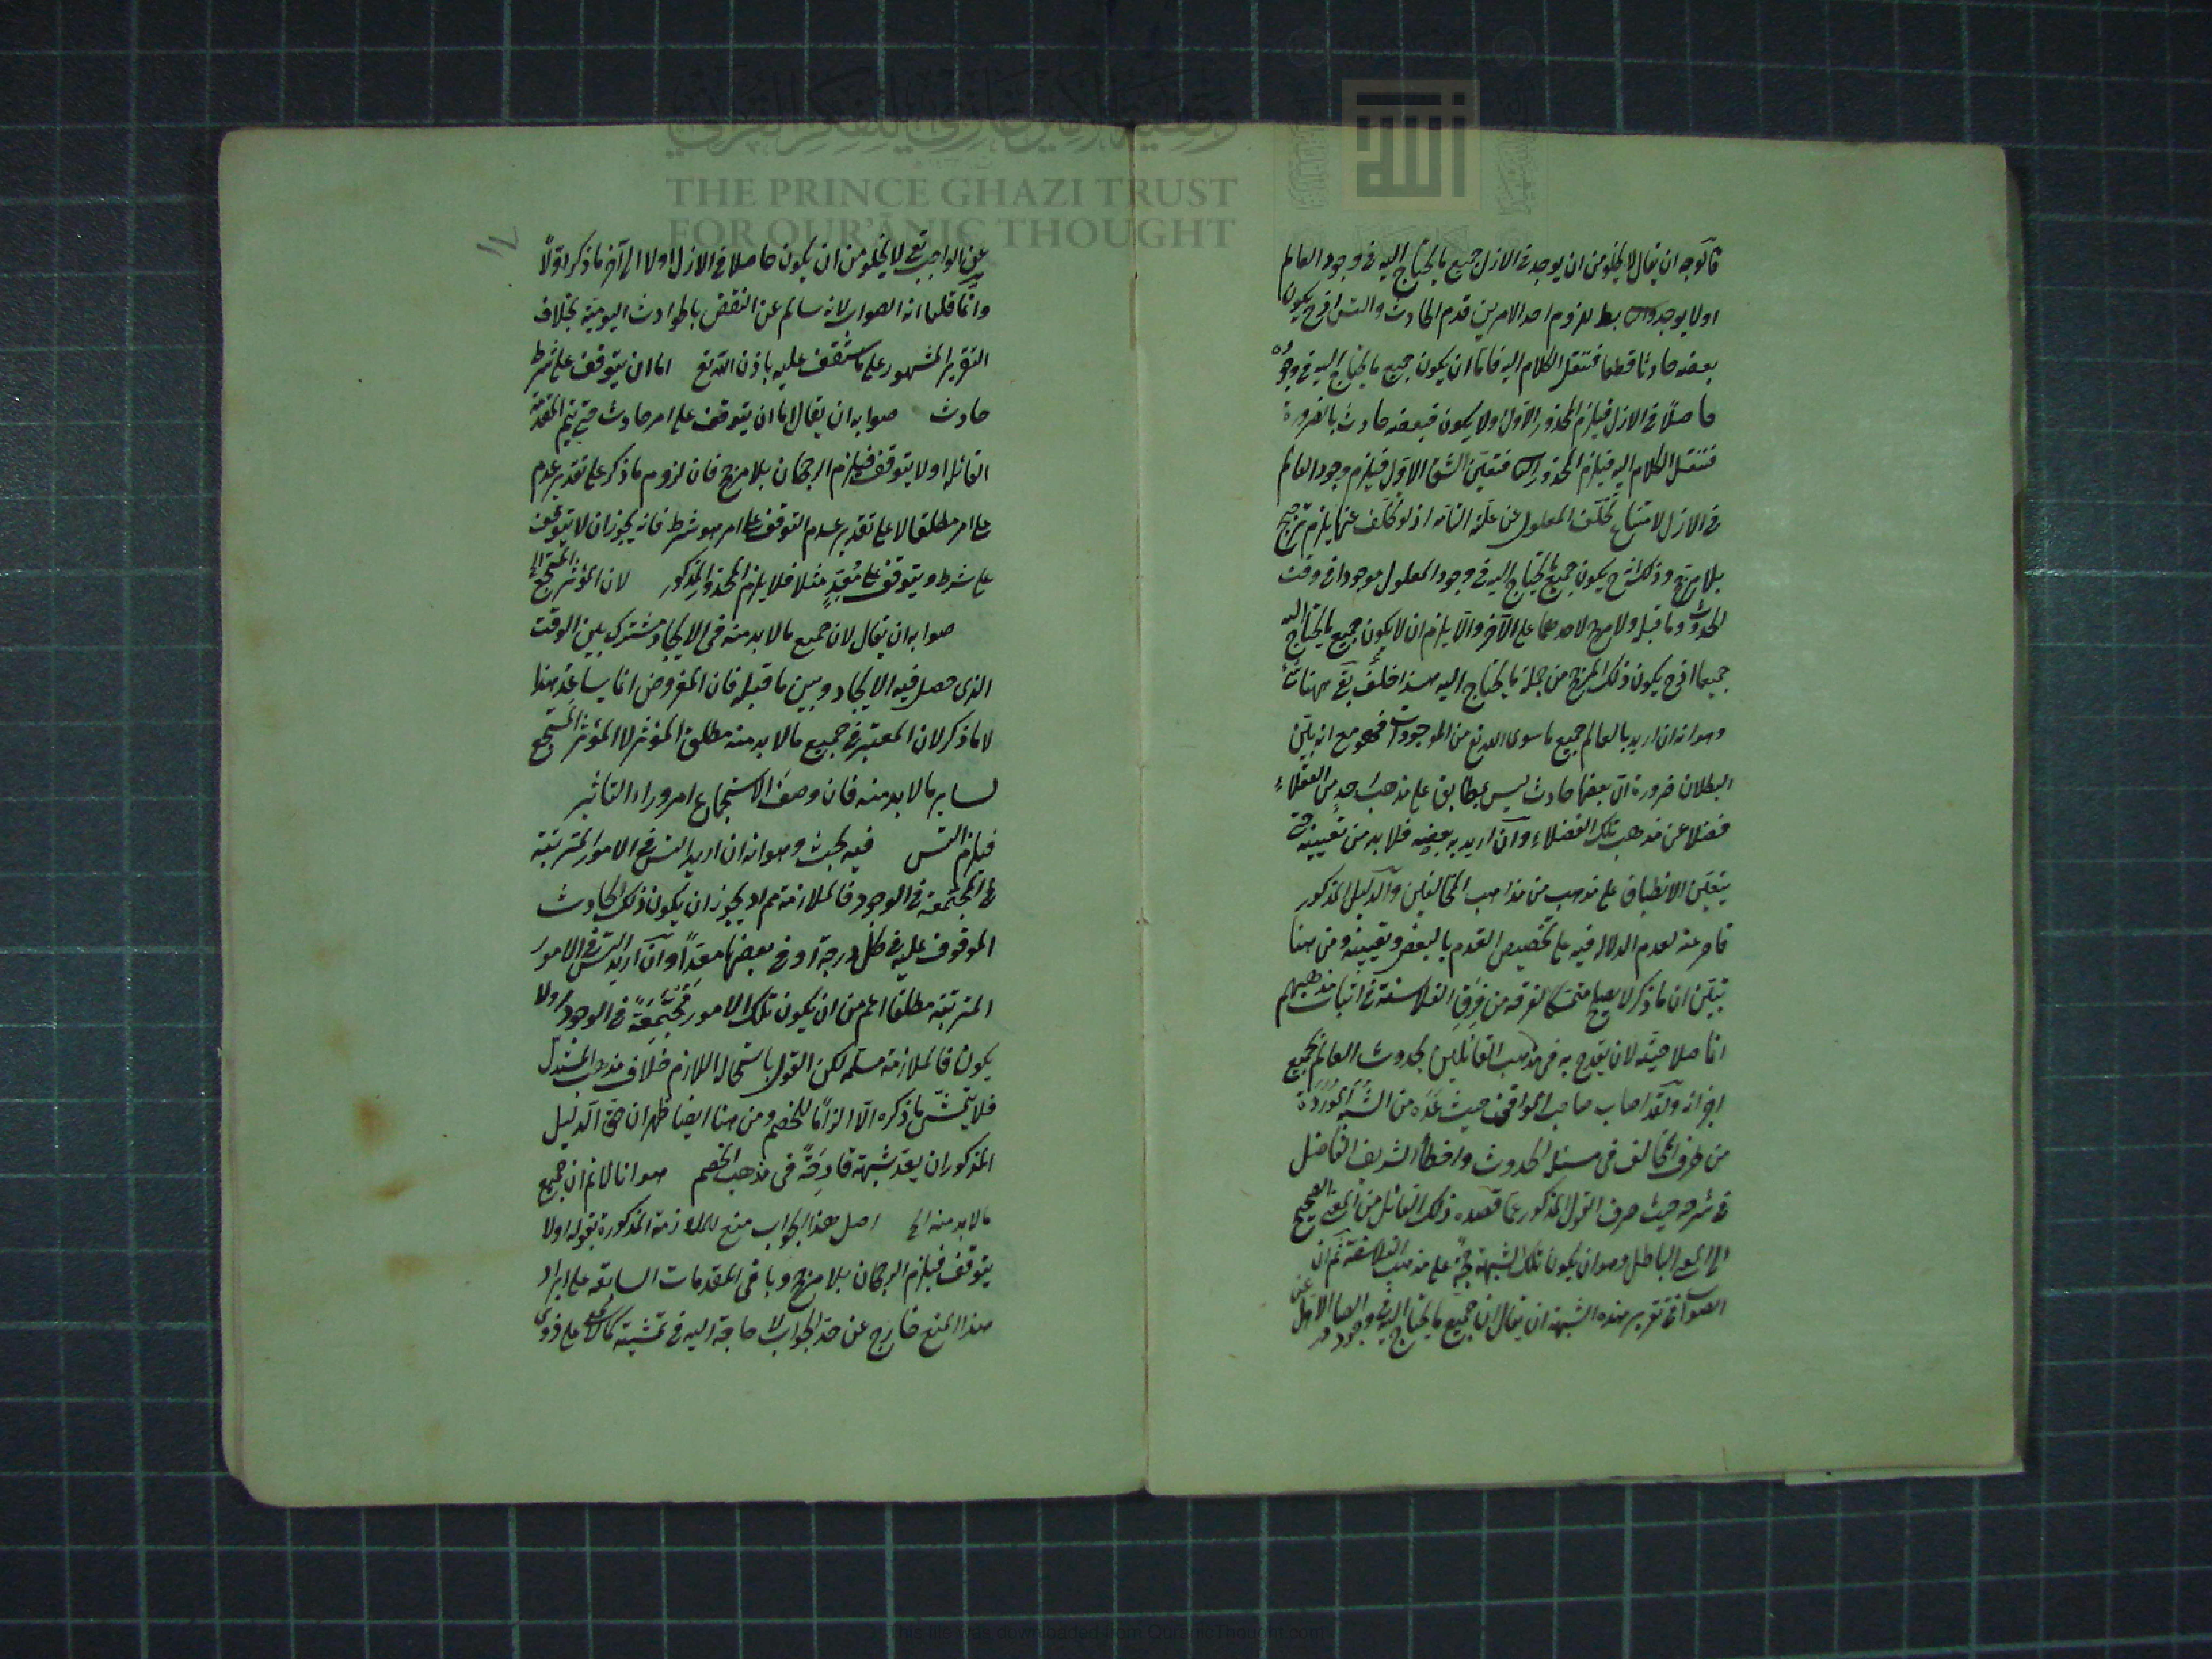 وقفية الأمير غازي للفكر القرآني
THE PRINCE GHAZI TRUST
FOR QUR'ĀNIC THOUGHT
فالوجه ان يقال لا يخلو من ان يوجد فى الازل جميع ما يحتاج اليه فى وجود العالم
اولا يوجد بط لزوم احد الامرين قدم الحادث والتس اذ ح يكون
بعضه حادثا قطعا فننقل الكلام اليه فاما ان يكون جميع ما يحتاج اليه فى وجوده
حاصلا فى الازل فيلزم المحذور الاول اولا يكون فبعضه حادث بالضرورة
فننقل الكلام اليه فيلزم المحذور فتعين الشق الاول فيلزم وجود العالم
فى الازل لامتناع تخلف المعلول عن علته التامة اذ لو تخلف عنها يلزم ترجيح
بلا مرجح وذلك انه ح يكون جميع ما يحتاج اليه فى وجود المعلول موجودا فى وقت
الحدوث وما قبله ولا مرجح لاحدهما على الآخر والا يلزم ان لا يكون جميع ما يحتاج اليه
جميعا اذ ح يكون ذلك المرجح من جملة ما يحتاج اليه هذا خلف بقى ههنا شئ
وهو انه ان اريد بالعالم جميع ما سوى الله تع من الموجودات فهو مع انه بين
البطلان ضرورة ان بعضها حادث ليس بمطابق على مذهب احد من العقلاء
فضلا عن مذهب تلك الفضلاء وان اريد به بعضه فلا بد من تعيينه حتى
يتعين الانطباق على مذهب من مذاهب المخالفين والدليل المذكور
قاصر عنه لعدم الدلالة فيه على تخصيص القدم بالبعض وتعيينه ومن هنا
تبين ان ما ذكر لا يصلح متمسكا لفرقة من فرق الفلاسفة فى اثبات مذهبهم
انما صلاحيته لان يقدح به فى مذهب القائلين بحدوث العالم بجميع
اجزائه ولقد اصاب صاحب المواقف حيث عده من الشبه الموردة
من طرف المخالف فى مسئلة الحدوث واخطأ الشريف الفاضل
فى شرحه حيث صرف القول المذكور عما قصده ذلك القائل من المعنى الصحيح
الى المعنى الباطل وهو ان يكون تلك الشبهة حجة على مذهب الفلاسفة ثم ان
الصواب فى تقرير هذه الشبهة ان يقال ان جميع ما يحتاج اليه فى وجود الصادر الاول عن
عن الواجب تع لا يخلو من ان يكون حاصلا فى الازل اولا الى آخر ما ذكر اولا
وانما قلنا انه الصواب لانه سالم عن النقض بالحوادث اليومية بخلاف
التقرير المشهور على ما ستقف عليه باذن الله تع اما ان يتوقف على شرط
حادث صوابه ان يقال اما ان يتوقف على امر حادث حتى يتم المقدمة
القائلة اولا يتوقف فيلزم الرجحان بلا مرجح فان لزوم ما ذكر على تقدير عدم
على امر مطلقا لا على تقدير عدم التوقف على امر هو شرط فانه يجوز ان لا يتوقف
على شرط ويتوقف على معد مثلا فلا يلزم المحذور المذكور لان المؤثر المستجمع الخ
صوابه ان يقال لان جميع ما لا بد منه فى الايجاد مشترك بين الوقت
الذى حصل فيه الايجاد وبين ما قبله فان المفروض انما يساعد هذا
لا ما ذكر لان المعتبر فى جميع ما لا بد منه مطلق المؤثر لا المؤثر المستجمع
لساير ما لا بد منه فان وصف الاستجماع امر وراء التاثير
فيلزم التس فيه بحث وهو انه ان اريد التس فى الامور المترتبة
المجتمعة فى الوجود فالملازمة مم اذ يجوز ان يكون ذلك الحادث
الموقوف عليه فى كل درجة او فى بعضها معدا وان اريد التس فى الامور
المترتبة مطلقا اعم من ان يكون تلك الامور مجتمعة فى الوجود اولا
يكون فالملازمة مسلمة لكن القول باستحالة اللازم خلاف مذهب المستدل
فلا يتمشى ما ذكره الا الزاما للخصم ومن هنا ايضا ظهر ان حق الدليل
المذكور ان يعد شبهة قادحة فى مذهب الخصم هو انا لا نم ان جميع
ما لا بد منه الخ اصل هذا الجواب منع الملازمة المذكورة بقوله اولا
يتوقف فيلزم الرجحان بلا مرجح وباقى المقدمات السابقة على ايراد
هذا المنع خارج عن حد الجواب لا حاجة اليه فى تمشيته كما لا يخفى على ذوى
This file was downloaded from QuranicThought.com